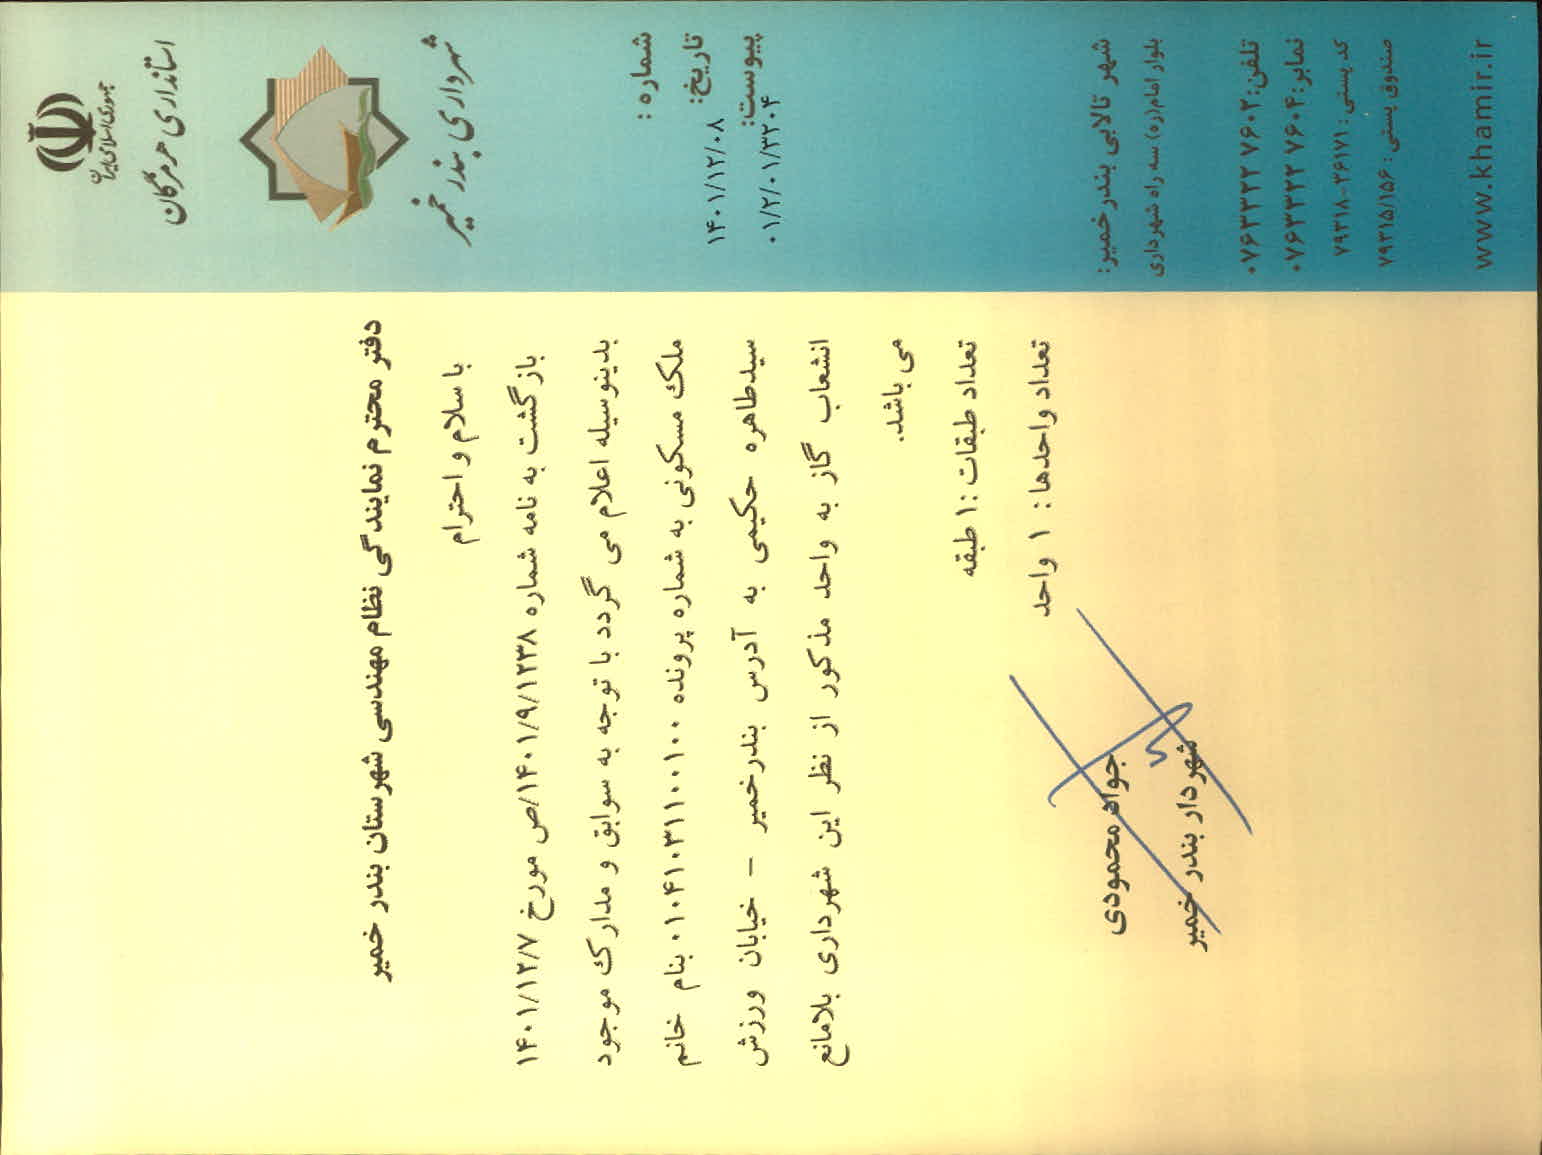 جمهوری اسلامی ایران
استانداری هرمزگان
شهرداری بندر خمیر
شماره :
تاریخ:
۱۴۰۱/۱۲/۰۸
پیوست:
۰۱/۲/۰۱/۳۲۰۴
شهر تالابی بندرخمیر:
بلوار امام(ره) سه راه شهرداری
تلفن: ۰۷۶۳۳۲۲ ۷۶۰۲
نمابر: ۰۷۶۳۳۲۲ ۷۶۰۴
کد پستی: ۷۹۳۱۸-۲۶۱۷۱
صندوق پستی: ۷۹۳۱۵/۱۵۶
www.khamir.ir
دفتر محترم نمایندگی نظام مهندسی شهرستان بندر خمیر
با سلام و احترام
بازگشت به نامه شماره ۱۴۰۱/۹/۱۲۳۸/ص مورخ ۱۴۰۱/۱۲/۷
بدینوسیله اعلام می گردد با توجه به سوابق و مدارک موجود
ملک مسکونی به شماره پرونده ۰۱۰۴۱۰۳۱۱۰۰۱۰۰ بنام خانم
سیدطاهره حکیمی به آدرس بندرخمیر – خیابان ورزش
انشعاب گاز به واحد مذکور از نظر این شهرداری بلامانع
می باشد.
تعداد طبقات :۱ طبقه
تعداد واحدها : ۱ واحد
جواد محمودی
شهردار بندر خمیر